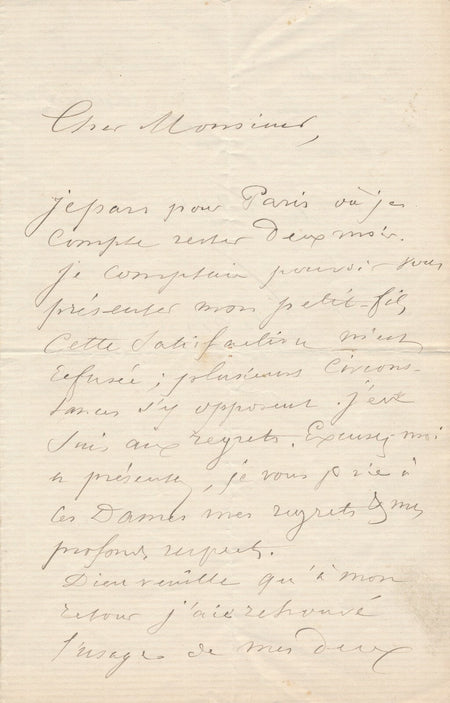 Cher Monsieur,
je pars pour Paris où je
compte rester Deux mois.
je comptais pouvoir vous
présenter mon petit-fils,
Cette Satisfaction m'est
refusée ; plusieurs Circons-
tances s'y opposent. j'en
suis aux regrets. Excusez-moi
et présentez, je vous prie à
ces Dames mes regrets & mes
profonds respects.
Dieu veuille qu'à mon
retour j'aie retrouvé
l'usage de mes deux